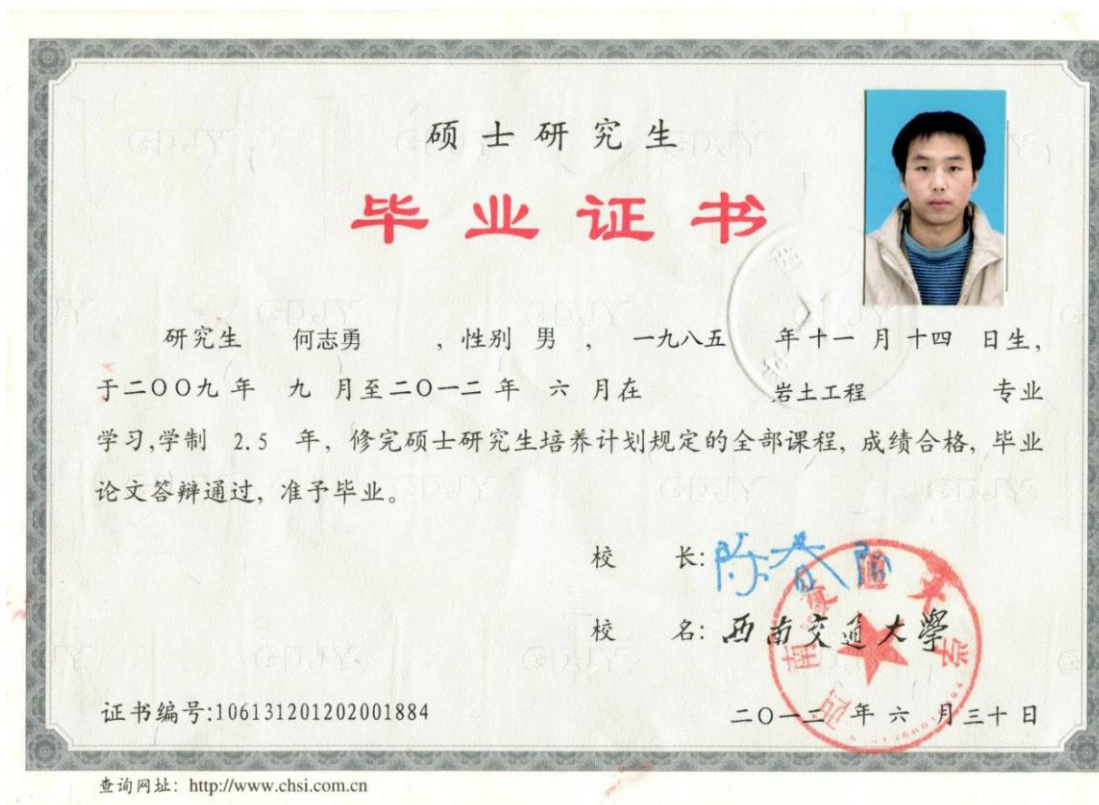 硕士研究生
毕业证书
研究生 何志勇 , 性别 男 , 一九八五 年十一 月十四 日生,
于二〇〇九 年 九 月至二〇一二 年 六 月在 岩土工程 专业
学习,学制 2.5 年, 修完硕士研究生培养计划规定的全部课程, 成绩合格, 毕业
论文答辩通过, 准予毕业。
校 长: 陈春阳
校 名: 西南交通大學
西南交通大学
证书编号:106131201202001884
二〇一二 年 六 月三十日
查询网址: http://www.chsi.com.cn